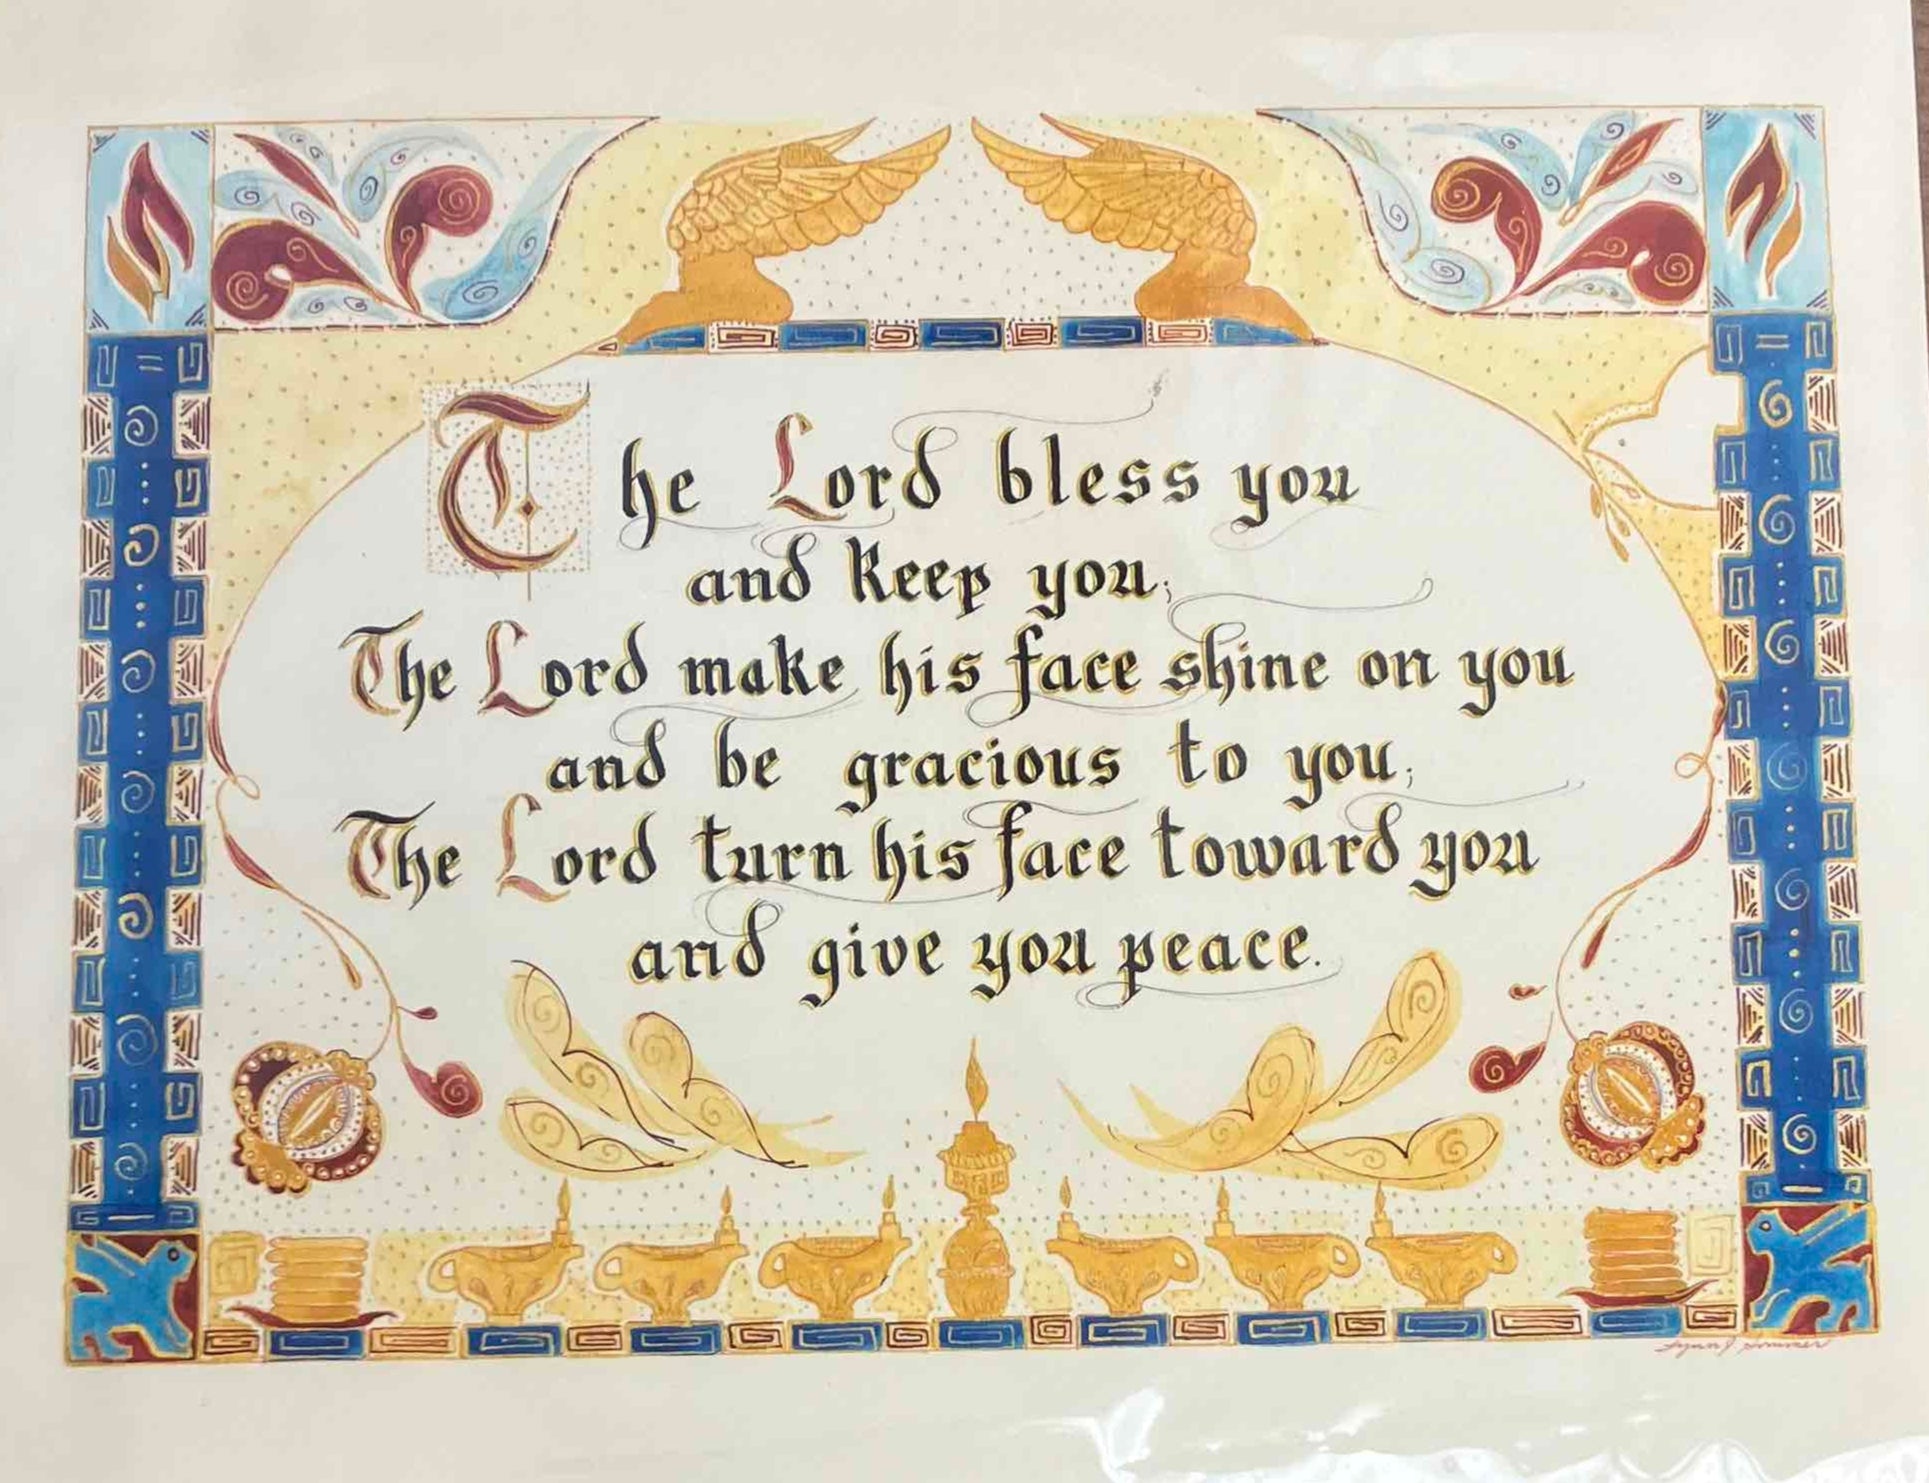 The Lord bless you
and keep you;
The Lord make his face shine on you
and be gracious to you;
The Lord turn his face toward you
and give you peace.
Lynn J Sommer